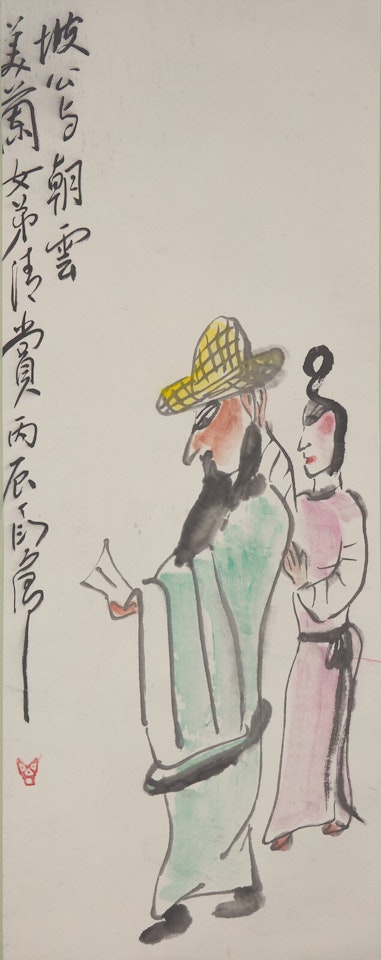 坡公与朝雲
美蘭女弟清賞丙辰丁衍庸